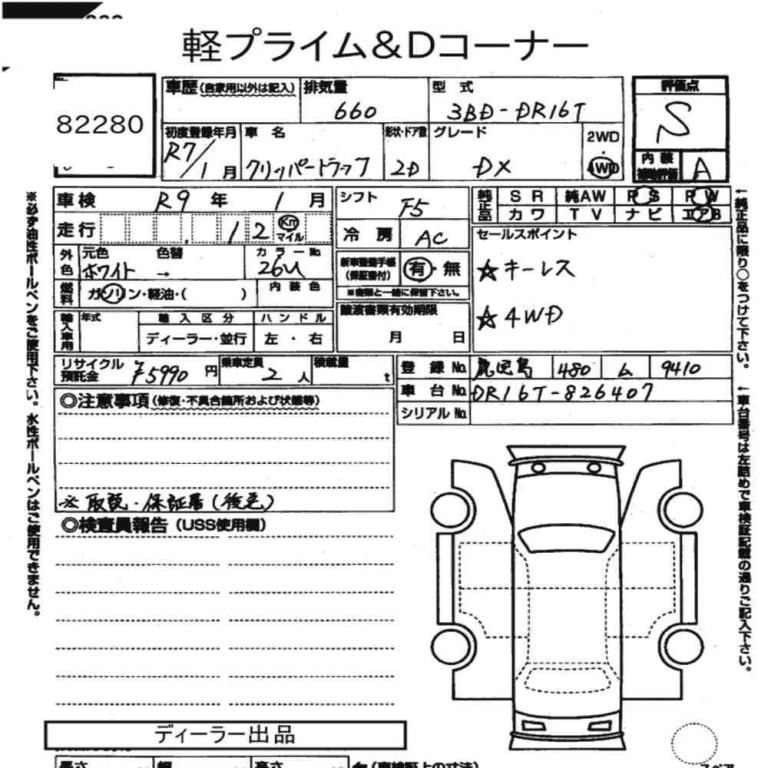 軽プライム&Dコーナー
82280
車歴(自家用以外は記入)
排気量
660
型式
3BD-DR16T
評価点
S
初度登録年月
R7/1月
車名
クリッパートラック
形状・ドア数
2D
グレード
DX
2WD
4WD
内装
補助評価
A
車検 R9年 1月
シフト F5
純正品
SR 純AW PS PW
カワ TV ナビ エアB
走行 12 Km マイル
冷房 AC
セールスポイント
外色
元色 色替 カラーNo
ホワイト → 26U
新車整備手帳(保証書付) 有・無
※書類と一緒に保管下さい。
☆キーレス
☆4WD
燃料 ガソリン・軽油・( ) 内装色
輸入車用 年式 輸入区分 ハンドル
ディーラー・並行 左・右
譲渡書類有効期限
月 日
リサイクル預託金 ¥5990円 乗車定員 2人 積載量 t
登録No. 鹿児島 480 ム 9410
車台No. DR16T-826407
シリアルNo.
◎注意事項(修復・不具合箇所および状態等)
※取説・保証書(後送)
◎検査員報告(USS使用欄)
※必ず油性ボールペンをご使用下さい。水性ボールペンはご使用できません。
←純正品に限り○をつけて下さい。
←車台番号は左詰めで車検証記載の通りご記入下さい。
ディーラー出品
長さ 幅 高さ ←(車検証上の寸法)
スペア